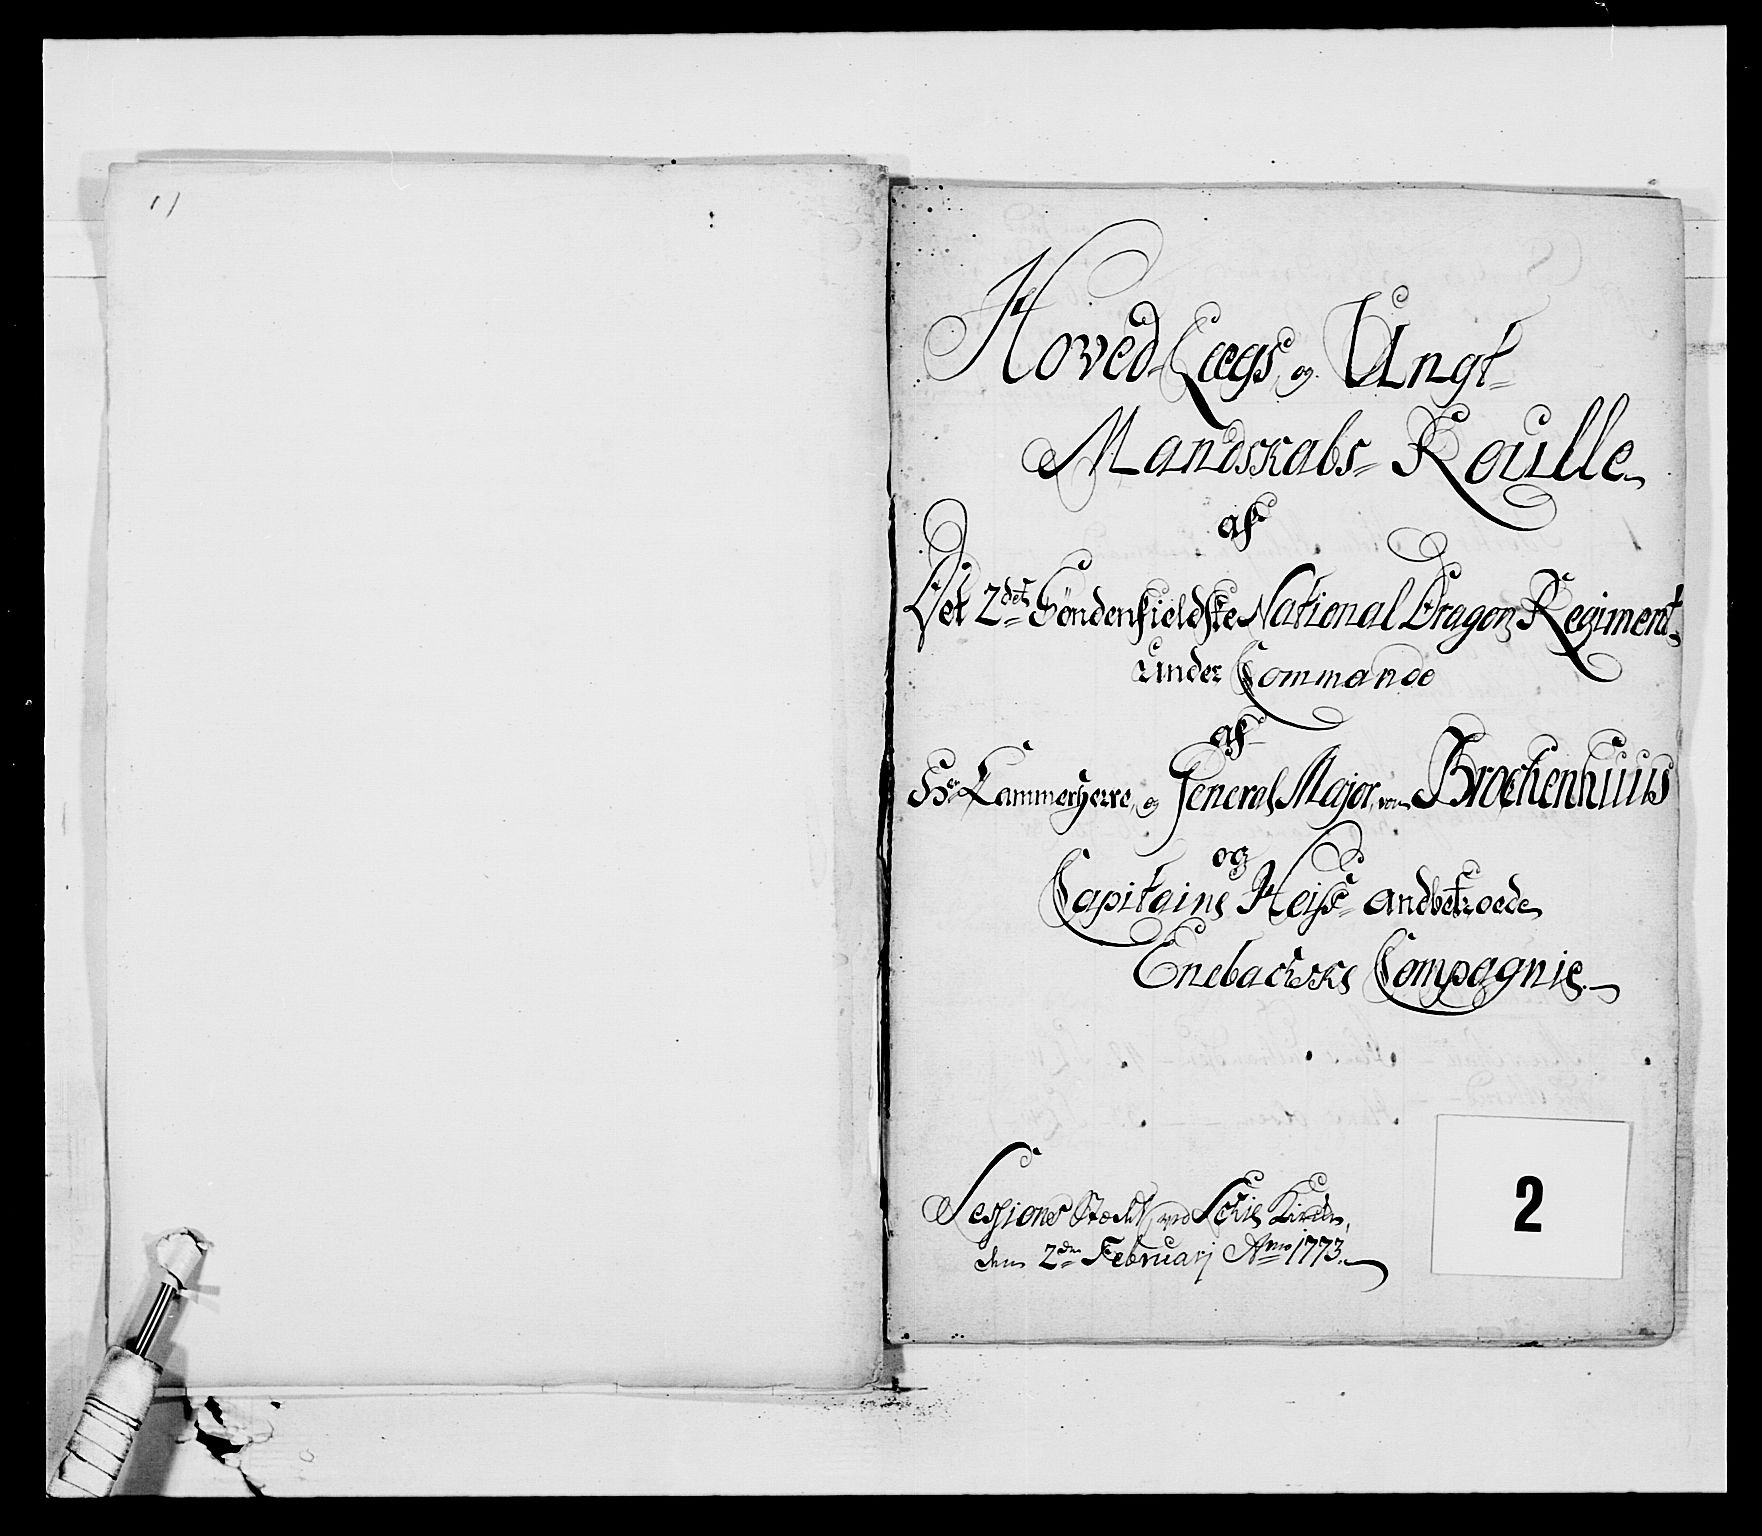 1)
Hoved-Lægs, og Ungt=
Mandskabs= Roulle
af
Det 2det Söndenfieldske National Dragon Regiment
under Commando
af
Hr Cammerherre, og General Major von Brockenhuus
og
Capitaine Heiss= andbetroede
Enebachske Compagnie.
Sessions Stædet, ved Schie Kirche,
den 2den Februarj Ao 1773.
2